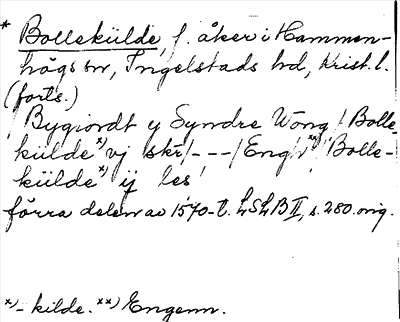 * Bollekülde, f. åker i Hammen-
högs sn, Ingelstads hd, Krist. l.
(forts.)
Bygiordt y Syndre Wong / Bolle-
külde x) vj skr/ - - - / Eng/r xx) / Bolle-
külde x) ij les
förra delen av 1570-t. LSLB II, s. 280. orig.
x) - kilde. xx) Engenn.